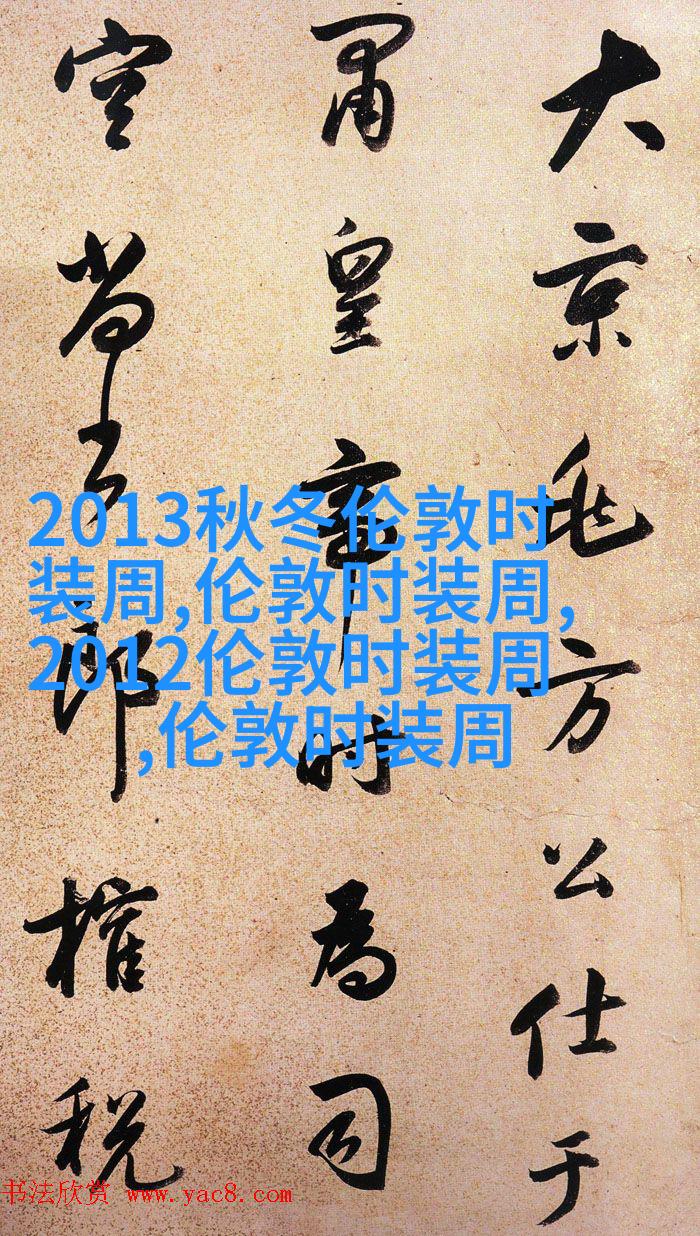 大京兆方公仕于
肅皇帝時為司
空尚書郎榷税
2013秋冬伦敦时
装周,伦敦时装周,
2012伦敦时装周
,伦敦时装周
书法欣赏 www.yac8.com